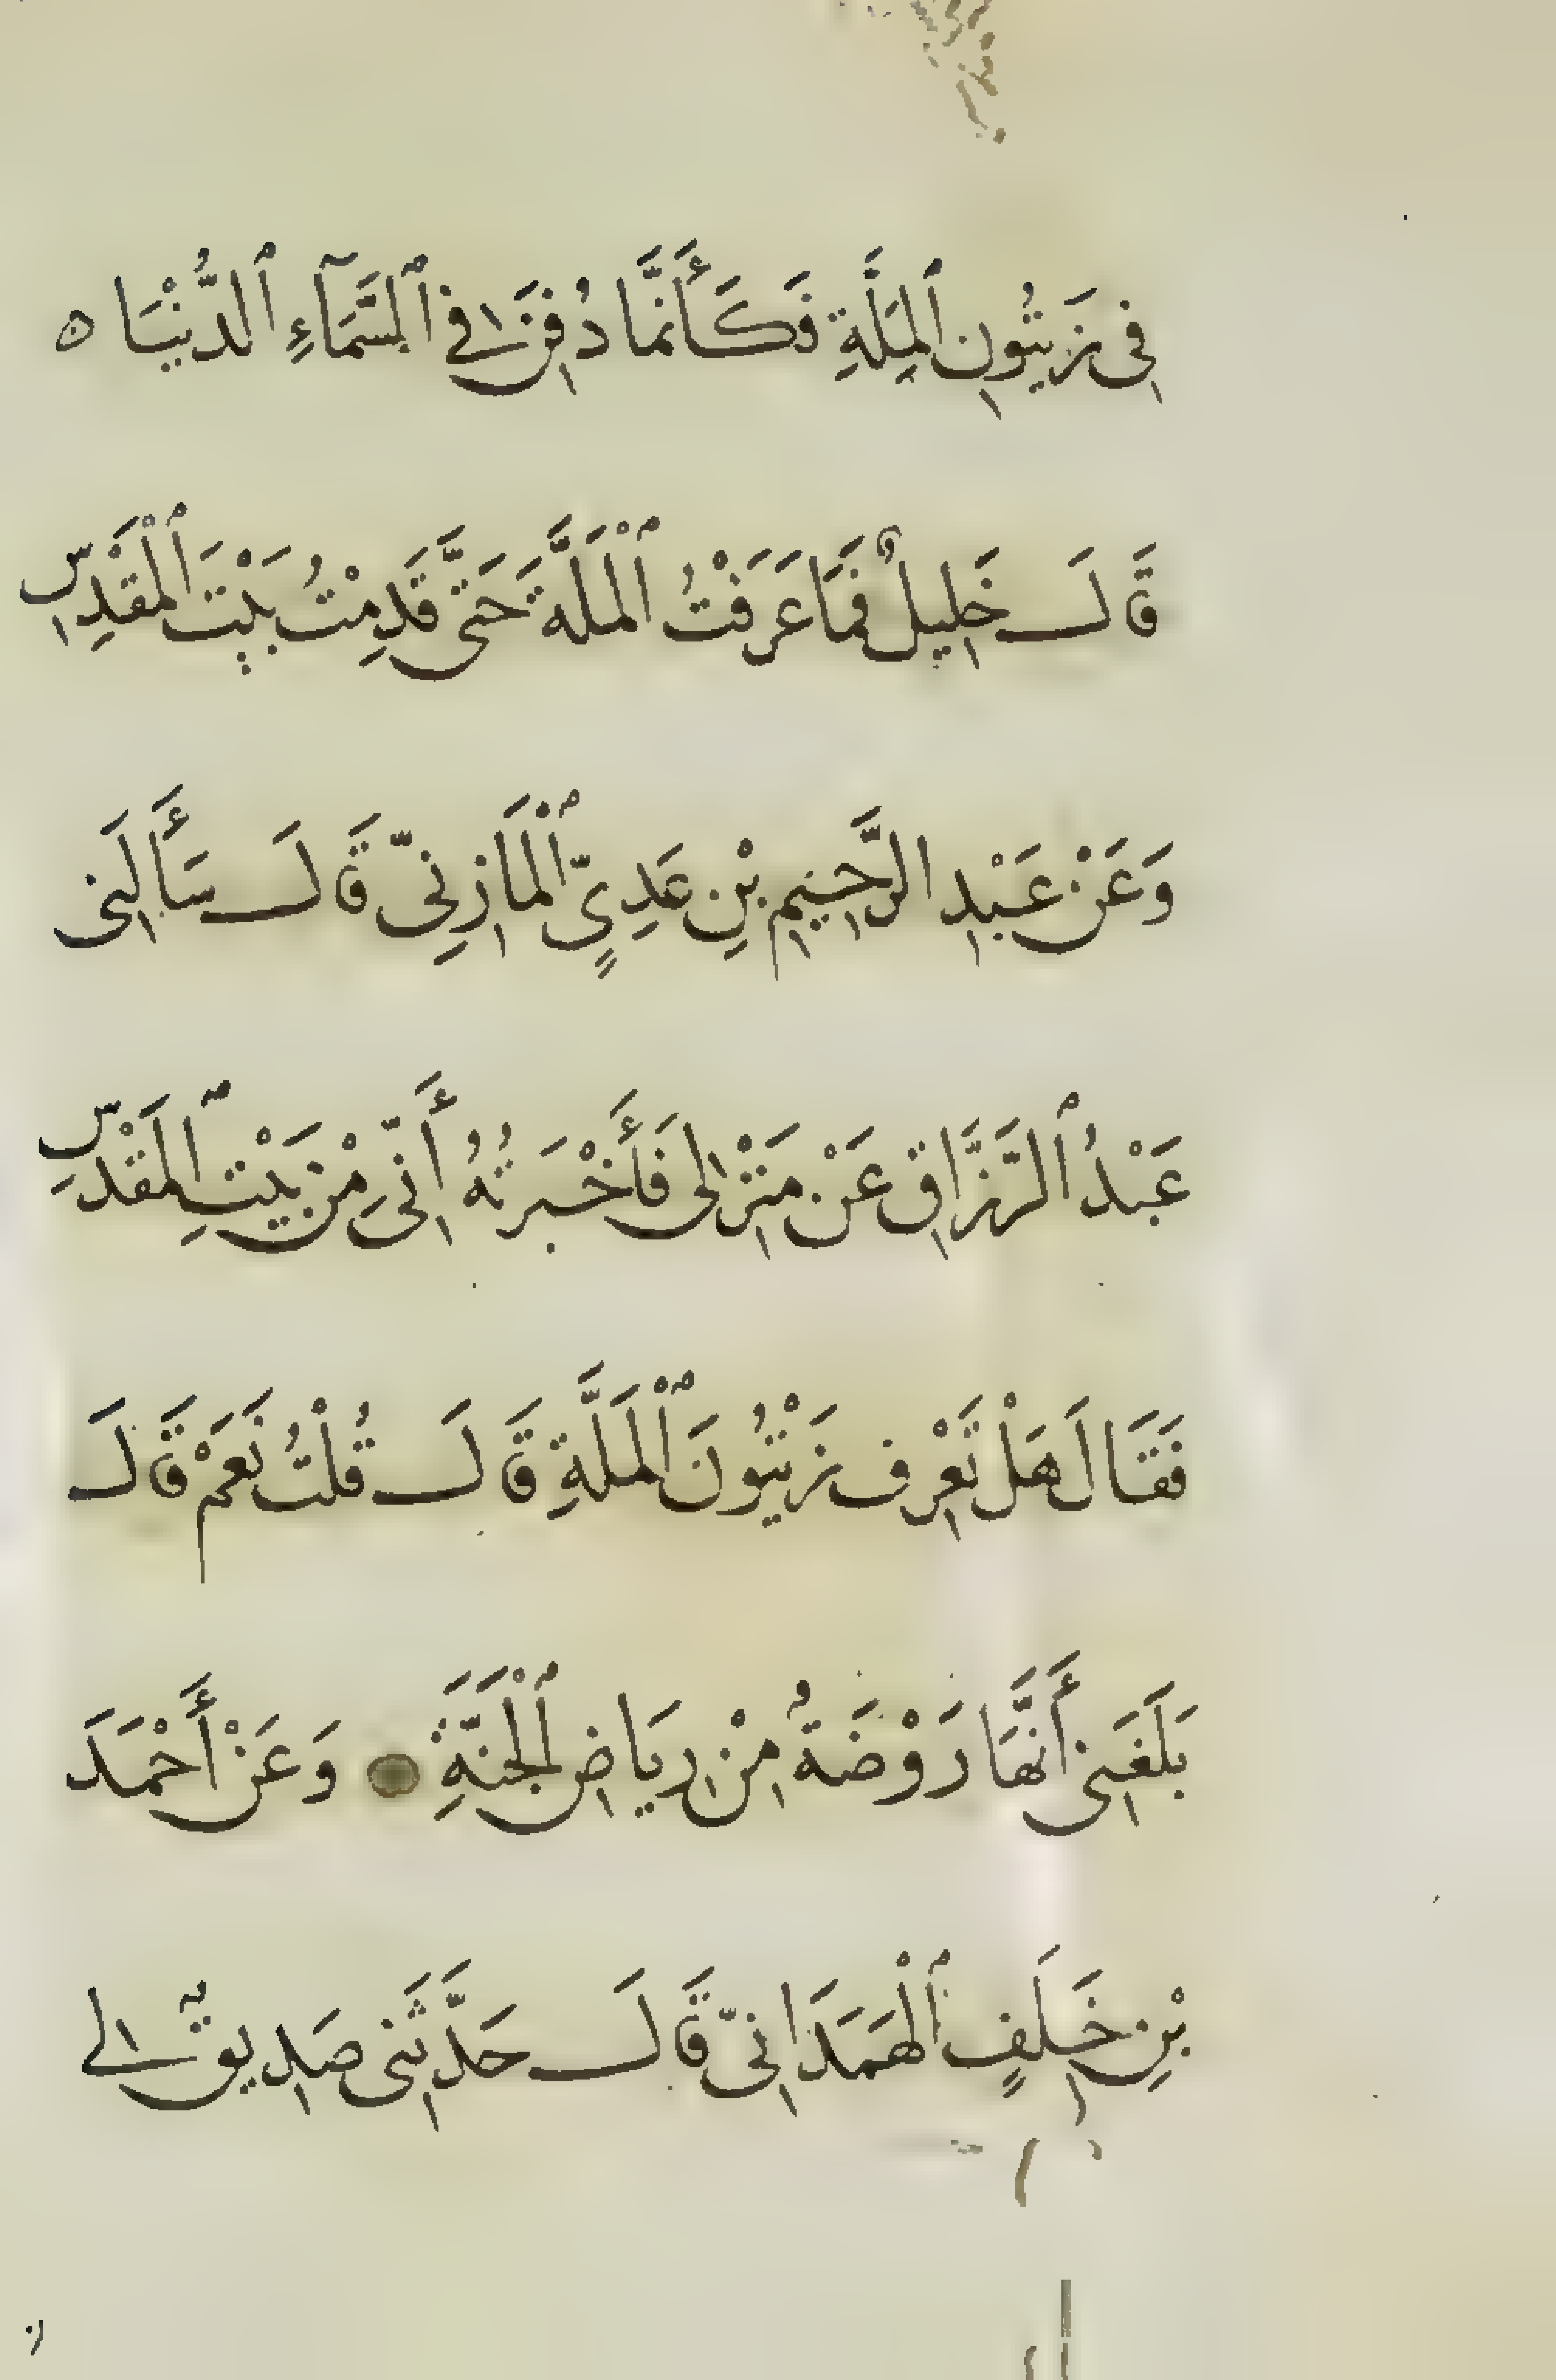 فِي زَيْتُونِ ٱلْمِلَّةِ فَكَأَنَّمَا دُفِنَ فِي ٱلسَّمَآءِ ٱلدُّنْيَا ه
قَالَ خَلِيلٌ فَمَا عَرَفْتُ ٱلْمَلَّةَ حَتَّى قَدِمْتُ بَيْتَ ٱلْمَقْدِسِ
وَعَنْ عَبْدِ الرَّحِيمِ بْنِ عَدِيٍّ ٱلْمَازِنِيِّ قَالَ سَأَلَنِي
عَبْدُ ٱلرَّزَّاقِ عَنْ مَنْزِلِي فَأَخْبَرْتُهُ أَنِّي مِنْ بَيْتِ ٱلْمَقْدِسِ
فَقَالَ هَلْ تَعْرِف زَيْتُونَ ٱلْمَلَّةِ قَالَ قُلْتُ نَعَمْ قَالَ
بَلَغَنِي أَنَّهَا رَوْضَةٌ مِنْ رِيَاضِ ٱلْجَنَّةِ وَعَنْ أَحْمَدَ
بْنِ خَلَفٍ ٱلْهَمَدَانِيِّ قَالَ حَدَّثَنِي صَدِيقٌ لِي